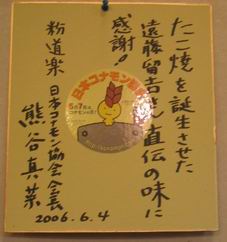 たこ焼を誕生させた
遠藤留吉さん直伝の味に
感謝!
日本コナモン協会
5月7日は
コナモンの日!
粉道楽 日本コナモン協会会長
熊谷真菜
2006.6.4